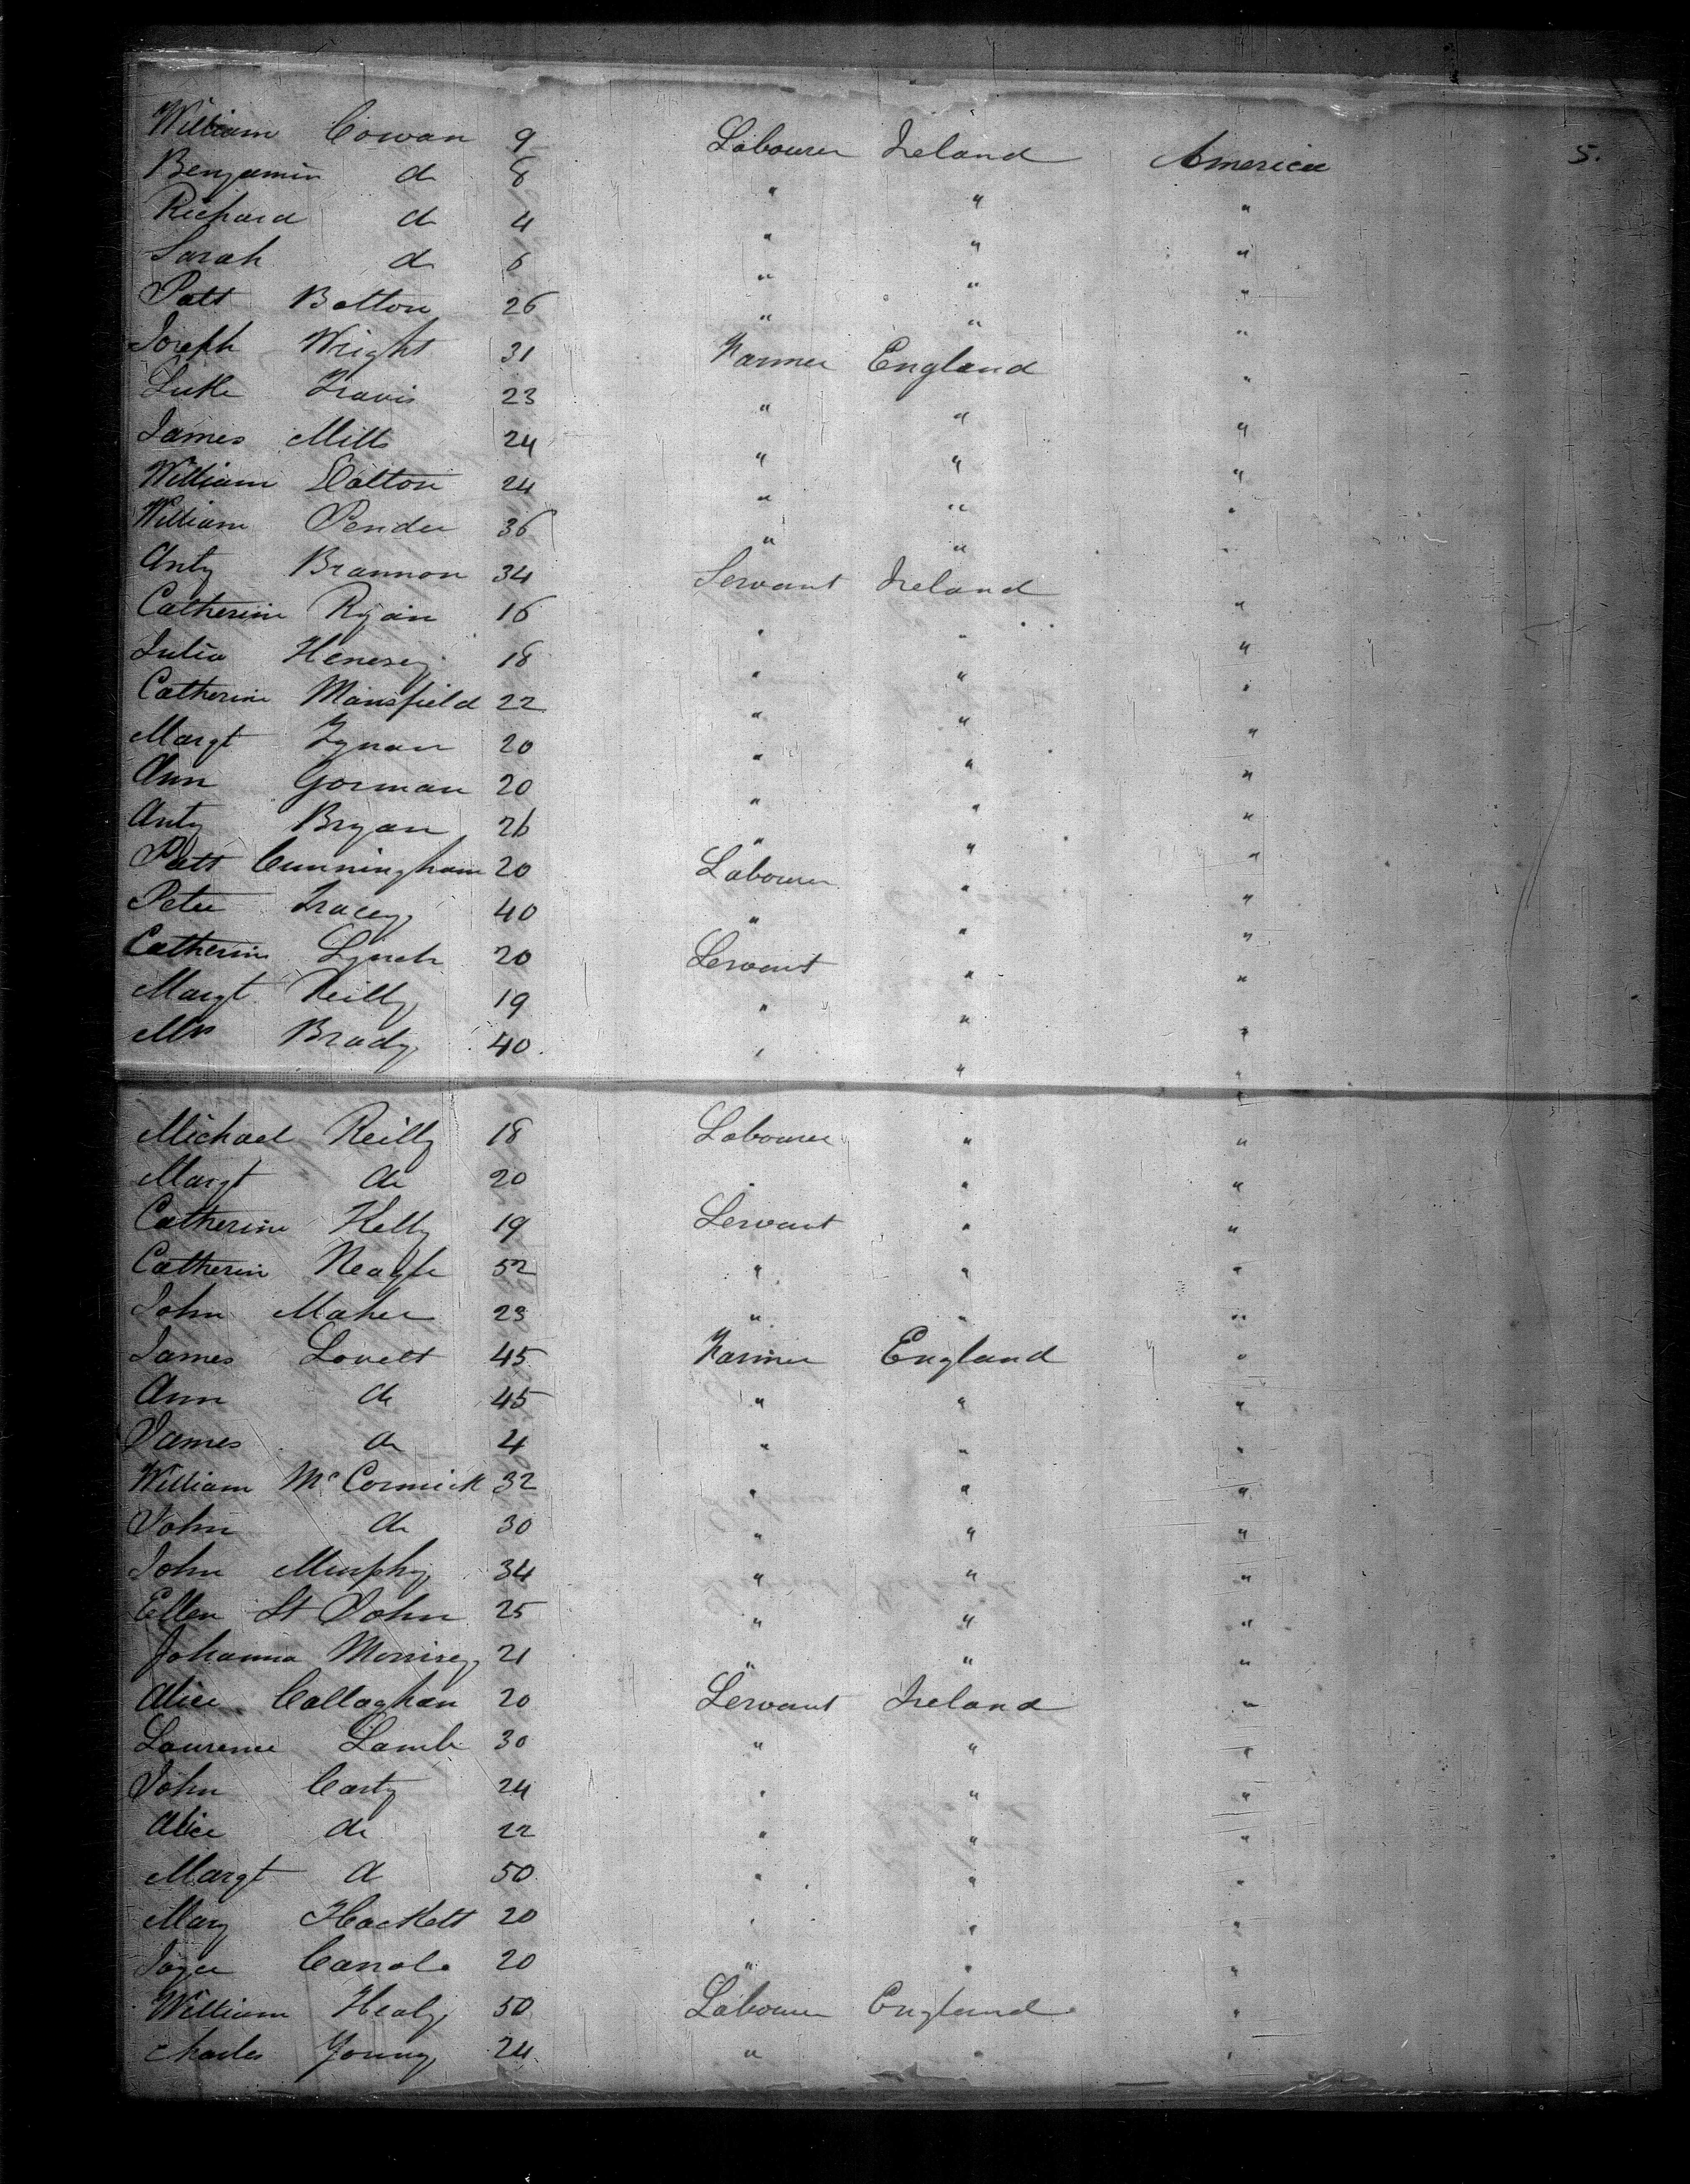 William Cowan 9 Labourer Ireland America 5.
Benjamin do 8 " " "
Richard do 4 " " "
Sarah do 6 " " "
Patt Bolton 26 " " "
Joseph Wright 31 Farmer England "
Luke Travis 23 " " "
James Mills 24 " " "
William Dalton 24 " " "
William Pender 36 " " "
Anty Brannon 34 Servant Ireland "
Catherine Ryan 16 " " "
Julia Henesey 18 " " "
Catherine Mansfield 22 " " "
Margt Tynan 20 " " "
Ann Gorman 20 " " "
Anty Bryan 26 " " "
Patt Cunningham 20 Labourer " "
Peter Tracey 40 " " "
Catherine Lynch 20 Servant " "
Margt Reilly 19 " " "
Mrs Brady 40 " " "
Michael Reilly 18 Labourer " "
Margt do 20 " " "
Catherine Kelly 19 Servant " "
Catherin Neagle 52 " " "
John Maher 23 " " "
James Lovett 45 Farmer England "
Ann do 45 " " "
James do 4 " " "
William McCormick 32 " " "
John do 30 " " "
John Murphy 34 " " "
Ellen St John 25 " " "
Johanna Morrisey 21 " " "
Alice Callaghan 20 Servant Ireland "
Laurence Lamb 30 " " "
John Carty 24 " " "
Alice do 22 " " "
Margt do 50 " " "
Mary Hackett 20 " " "
20 " " "
William Healy 50 Labourer England "
Charles Young 24 " " "